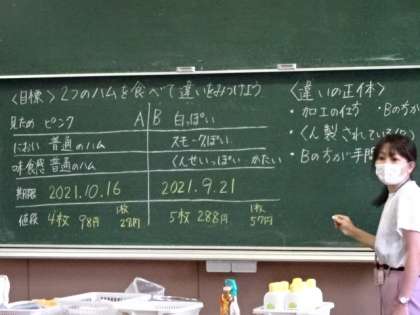 〈目標〉2つのハムを食べて違いをみつけよう
A B
見ため ピンク 白っぽい
におい 普通のハム スモークっぽい
味食感 普通のハム くんせいっぽい かたい
期限 2021.10.16 2021.9.21
値段 4枚 98円 1枚 5枚 288円 1枚 57円
〈違いの正体〉
・加工の仕方 ・Bの方が
・くん製されている
・Bの方が手間